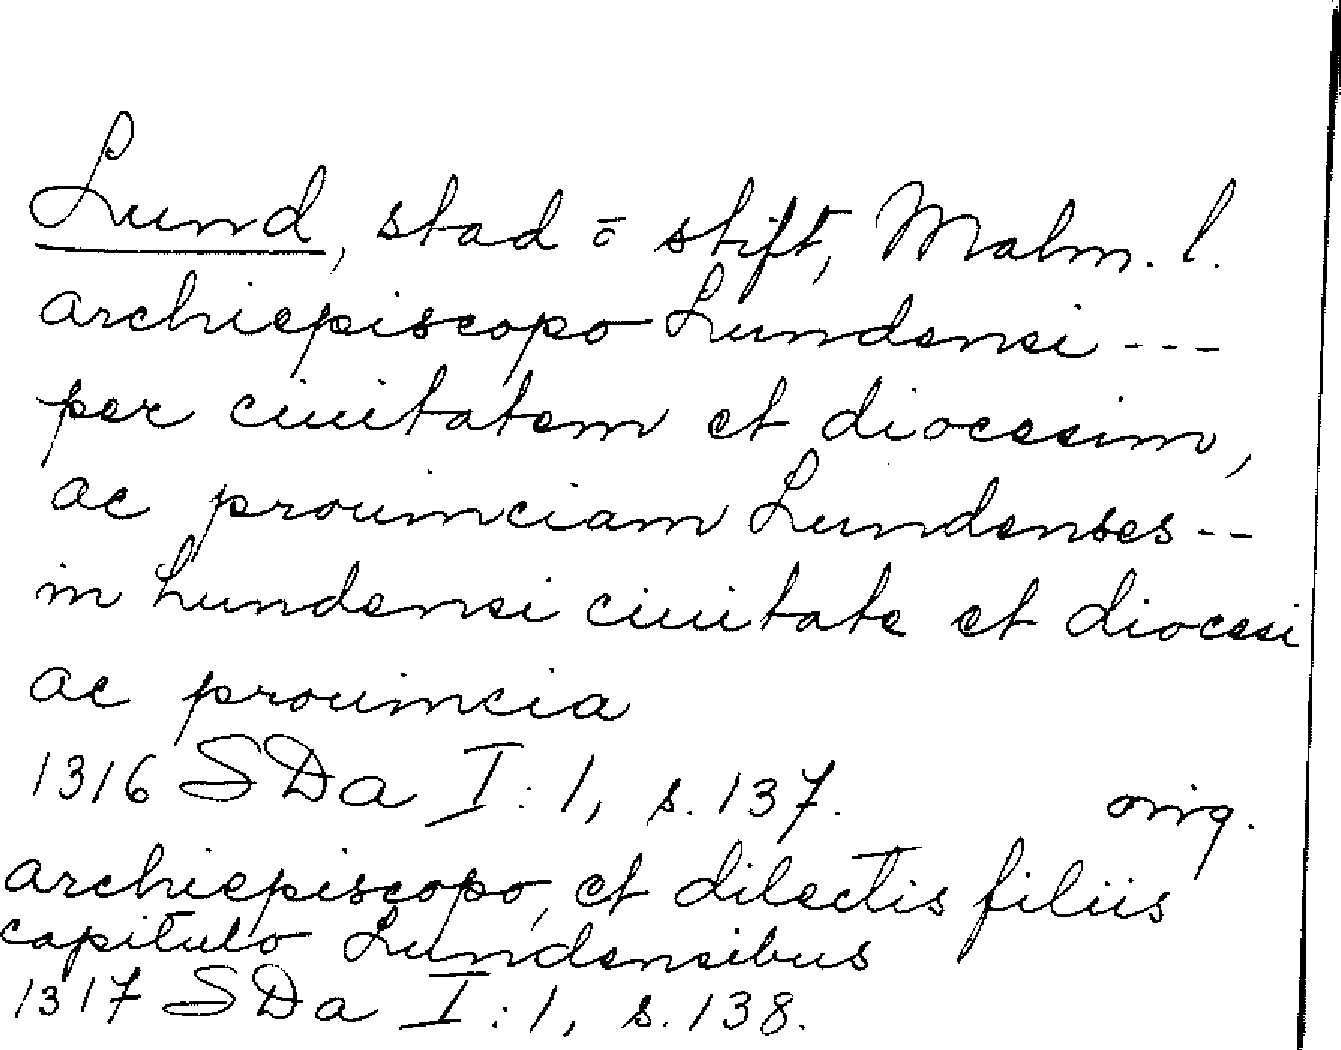 Lund, stad o stift, Malm. l.
archiepiscopo Lundensi ---
per ciuitatem et diocesim,
ac prouinciam Lundenses --
in Lundensi ciuitate et diocesi
ac prouincia
1316 SDa I:1, s. 137. orig.
archiepiscopo, et dilectis filiis
capitulo Lundensibus
1317 SDa I:1, s. 138.